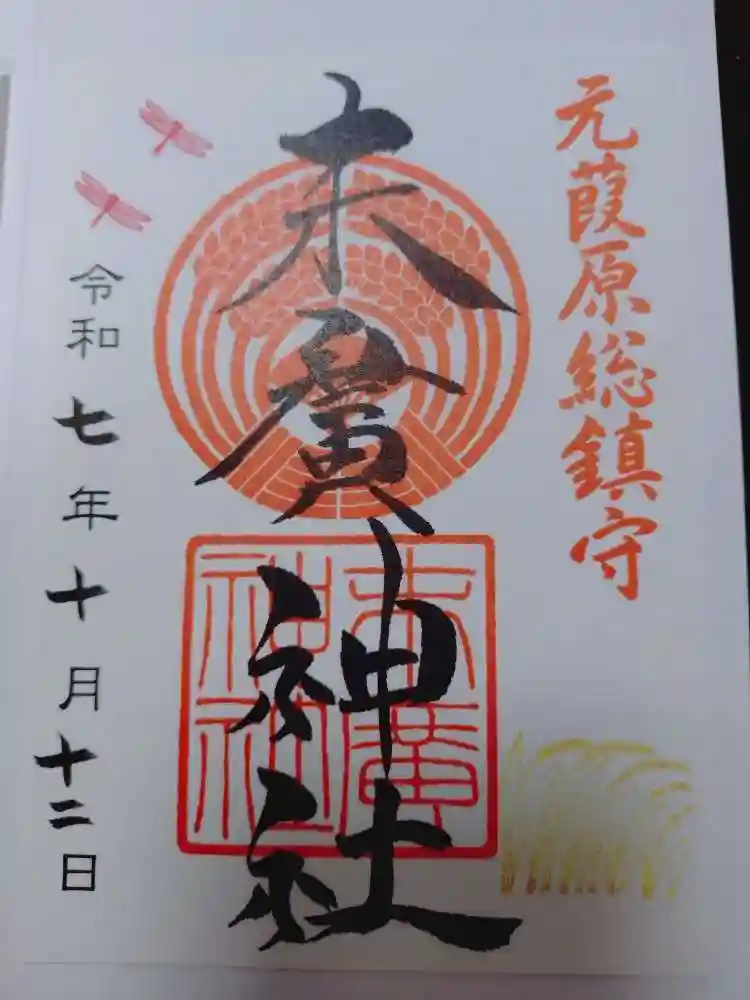 元葭原総鎮守
末廣神社
末廣
神社
令和七年十月十二日